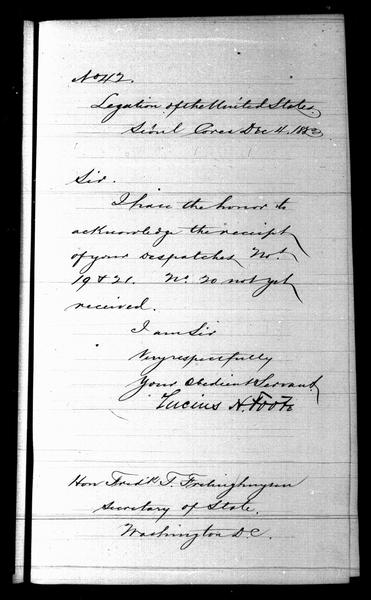 No 42.
Legation of the United States
Séoul Corea Dec 4. 1883
Sir.
I have the honor to
acknowledge the receipt
of your despatches Nos.
19 & 21. No. 20 not yet
received.
I am Sir
Very respectfully
Your Obedient Servant
Lucius H. Foote
Hon Fredk T. Frelinghuysen
Secretary of State.
Washington D.C.